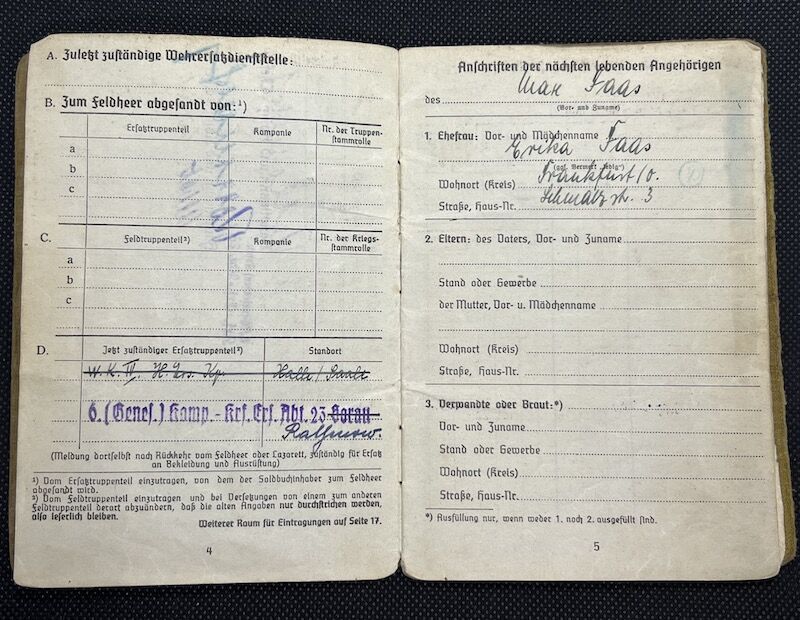 A. Zuletzt zuständige Wehrersatzdienststelle:
B. Zum Feldheer abgesandt von:¹)
Ersatztruppenteil Kompanie Nr. der Truppen-
stammrolle
a
b
c
C. Feldtruppenteil²) Kompanie Nr. der Kriegs-
stammrolle
a
b
c
D. Jetzt zuständiger Ersatztruppenteil²) Standort
W.K. IV Kp. Halle / Saale
6. (Genes.) Komp. - Krf. Ers. Abt. 23 Sorau
Rathenow.
(Meldung dortselbst nach Rückkehr vom Feldheer oder Lazarett, zuständig für Ersatz
an Bekleidung und Ausrüstung)
¹) Vom Ersatztruppenteil einzutragen, von dem der Soldbuchinhaber zum Feldheer
abgesandt wird.
²) Vom Feldtruppenteil einzutragen und bei Versetzungen von einem zum anderen
Feldtruppenteil derart abzuändern, daß die alten Angaben nur durchstrichen werden,
also leserlich bleiben.
Weiterer Raum für Eintragungen auf Seite 17.
4
Anschriften der nächsten lebenden Angehörigen
des Max Faas
(Vor- und Zuname)
1. Ehefrau: Vor- und Mädchenname Erika Faas
(ggf. Vermerk „ledig")
Wohnort (Kreis) Frankfurt/O.
Straße, Haus-Nr. Schmalzstr. 3
2. Eltern: des Vaters, Vor- und Zuname
Stand oder Gewerbe
der Mutter, Vor- u. Mädchenname
Wohnort (Kreis)
Straße, Haus-Nr.
3. Verwandte oder Braut:*)
Vor- und Zuname
Stand oder Gewerbe
Wohnort (Kreis)
Straße, Haus-Nr.
*) Ausfüllung nur, wenn weder 1. noch 2. ausgefüllt sind.
5